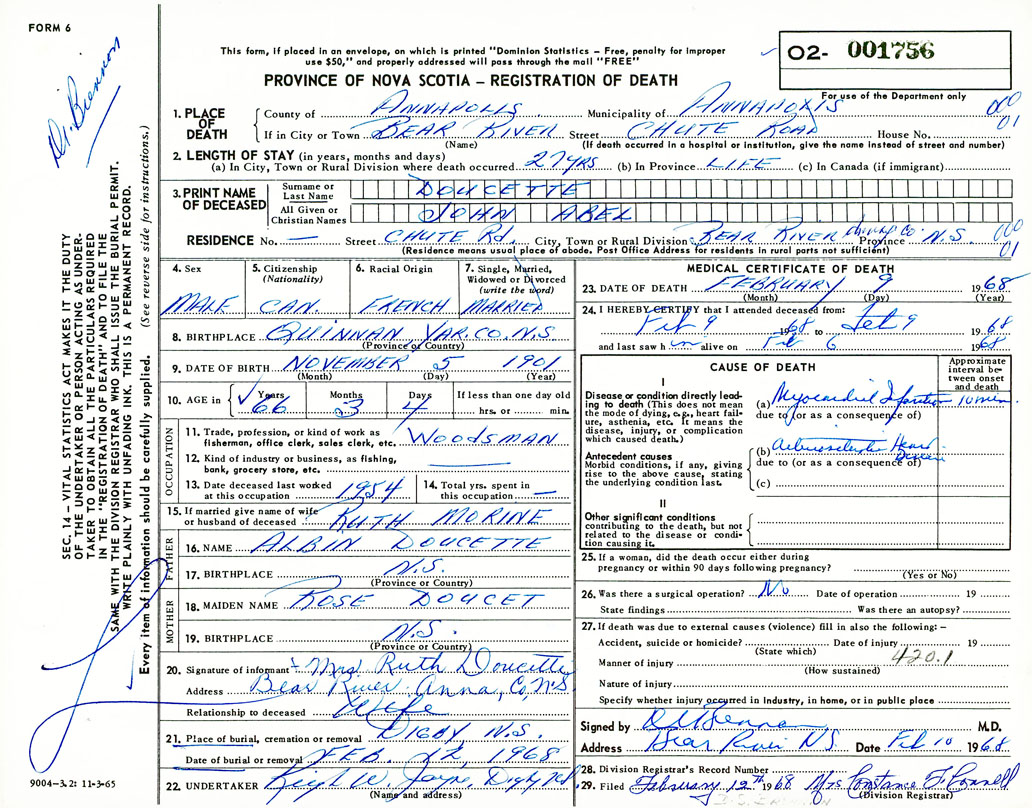 FORM 6
This form, if placed in an envelope, on which is printed "Dominion Statistics – Free, penalty for improper
use $50," and properly addressed will pass through the mail "FREE"
PROVINCE OF NOVA SCOTIA – REGISTRATION OF DEATH
02- 001756
For use of the Department only
Dr. Brennan
SEC. 14 – VITAL STATISTICS ACT MAKES IT THE DUTY
OF THE UNDERTAKER OR PERSON ACTING AS UNDER-
TAKER TO OBTAIN ALL THE PARTICULARS REQUIRED
IN THE "REGISTRATION OF DEATH" AND TO FILE THE
SAME WITH THE DIVISION REGISTRAR WHO SHALL ISSUE THE BURIAL PERMIT.
WRITE PLAINLY WITH UNFADING INK. THIS IS A PERMANENT RECORD.
Every item of information should be carefully supplied. (See reverse side for instructions.)
1. PLACE OF DEATH County of ANNAPOLIS Municipality of ANNAPOLIS 000
If in City or Town BEAR RIVER Street CHUTE ROAD House No. 01
(Name) (If death occurred in a hospital or institution, give the name instead of street and number)
2. LENGTH OF STAY (in years, months and days)
(a) In City, Town or Rural Division where death occurred 27 YRS (b) In Province LIFE (c) In Canada (if immigrant)
3. PRINT NAME OF DECEASED Surname or Last Name DOUCETTE
All Given or Christian Names JOHN ABEL
RESIDENCE No. — Street CHUTE Rd. City, Town or Rural Division BEAR RIVER Annap Co. Province N.S. 000
(Residence means usual place of abode. Post Office Address for residents in rural parts not sufficient) 01
4. Sex MALE
5. Citizenship (Nationality) CAN.
6. Racial Origin FRENCH
7. Single, Married, Widowed or Divorced (write the word) MARRIED
8. BIRTHPLACE QUINNAN YAR. CO. N.S
(Province or Country)
9. DATE OF BIRTH NOVEMBER 5 1901
(Month) (Day) (Year)
10. AGE in Years 66 Months 3 Days 4 If less than one day old
hrs. or min.
OCCUPATION
11. Trade, profession, or kind of work as
fisherman, office clerk, sales clerk, etc. WOODSMAN
12. Kind of industry or business, as fishing,
bank, grocery store, etc. —
13. Date deceased last worked at this occupation 1954
14. Total yrs. spent in this occupation —
15. If married give name of wife
or husband of deceased RUTH MORINE
FATHER
16. NAME ALBIN DOUCETTE
17. BIRTHPLACE N.S.
(Province or Country)
MOTHER
18. MAIDEN NAME ROSE DOUCET
19. BIRTHPLACE N.S.
(Province or Country)
20. Signature of informant Mrs Ruth Doucette
Address Bear River Anna, Co, N.S
Relationship to deceased Wife
21. Place of burial, cremation or removal DIGBY N.S.
Date of burial or removal FEB. 12, 1968
22. UNDERTAKER W. Jayne, Digby N.S.
(Name and address)
9004–3.2: 11-3-65
MEDICAL CERTIFICATE OF DEATH
23. DATE OF DEATH FEBRUARY 9 1968
(Month) (Day) (Year)
24. I HEREBY CERTIFY that I attended deceased from:
Feb 9 1968 to Feb 9 1968
and last saw him alive on Feb 6 1968
CAUSE OF DEATH
Approximate interval be-
tween onset and death
I
Disease or condition directly lead-
ing to death (This does not mean
the mode of dying, e.g., heart fail-
ure, asthenia, etc. It means the
disease, injury, or complication
which caused death.)
(a) Myocardial Infarction 10 min
due to (or as a consequence of)
Antecedent causes
Morbid conditions, if any, giving
rise to the above cause, stating
the underlying condition last.
(b) Heart Disease
due to (or as a consequence of)
(c)
II
Other significant conditions
contributing to the death, but not
related to the disease or condi-
tion causing it.
25. If a woman, did the death occur either during
pregnancy or within 90 days following pregnancy?
(Yes or No)
26. Was there a surgical operation? No Date of operation 19
State findings Was there an autopsy?
27. If death was due to external causes (violence) fill in also the following: –
Accident, suicide or homicide? Date of injury 19
(State which) 420.1
Manner of injury
(How sustained)
Nature of injury
Specify whether injury occurred in industry, in home, or in public place
Signed by Brennan M.D.
Address Bear River N.S. Date Feb 10 1968
28. Division Registrar's Record Number
29. Filed February 12th 1968 Mrs Constance F Connell
(Division Registrar)